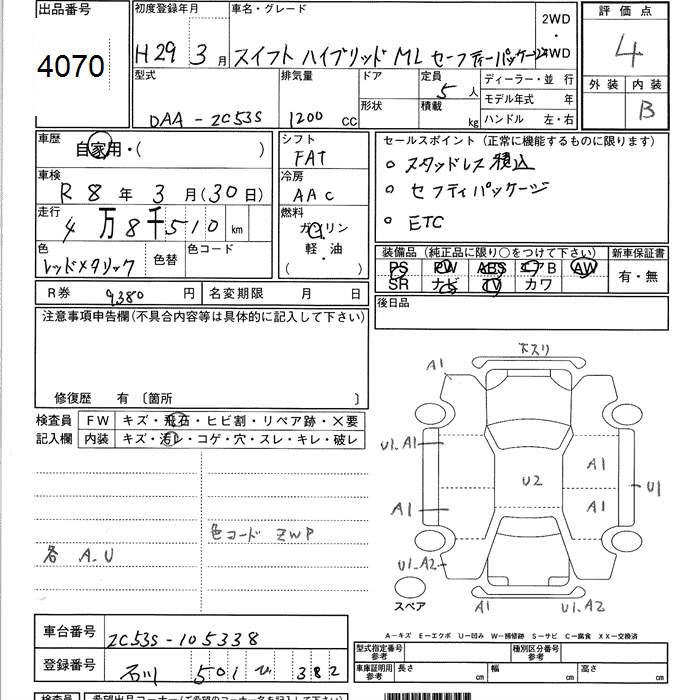 出品番号
4070
初度登録年月
H29 3月
車名・グレード
スイフト ハイブリッド ML セーフティーパッケージ
2WD
・
4WD
評価点
4
外装 内装
B
型式
DAA-ZC53S
排気量
1200 CC
ドア
形状
定員
5 人
積載
kg
ディーラー・並 行
モデル年式 年
ハンドル 左・右
車歴
自家用・( )
車検
R 8 年 3 月(30日)
走行
4万8千510 km
色
レッドメタリック
色替
色コード
シフト
FAT
冷房
AAC
燃料
ガソリン
軽・油
( )
セールスポイント(正常に機能するものに限ります)
○ スタッドレス積込
○ セフティパッケージ
○ ETC
装備品(純正品に限り○をつけて下さい)
新車保証書
PS PW ABS エアB AW
有・無
SR ナビ TV カワ
R券 9380 円
名変期限 月 日
後日品
注意事項申告欄(不具合内容等は具体的に記入して下さい)
修復歴 有 〔箇所 〕
検査員
記入欄
FW キズ・飛石・ヒビ割・リペア跡・×要
内装 キズ・汚レ・コゲ・穴・スレ・キレ・破レ
色コード ZWP
各 A.U
ホスリ
A1
U1.A1
A1
U2
A1
U1
A1
A1
U1.A2
A1
U1.A2
スペア
A─キズ E─エクボ U─凹み W─補修跡 S─サビ C─腐食 XX─交換済
車台番号
ZC53S-105338
登録番号
石川 501 ひ 382
型式指定番号
参考
種別区分番号
参考
車庫証明用
参考
長さ cm
幅 cm
高さ cm
検査員
希望出品コーナー(ご希望のコーナー名を記入下さい)